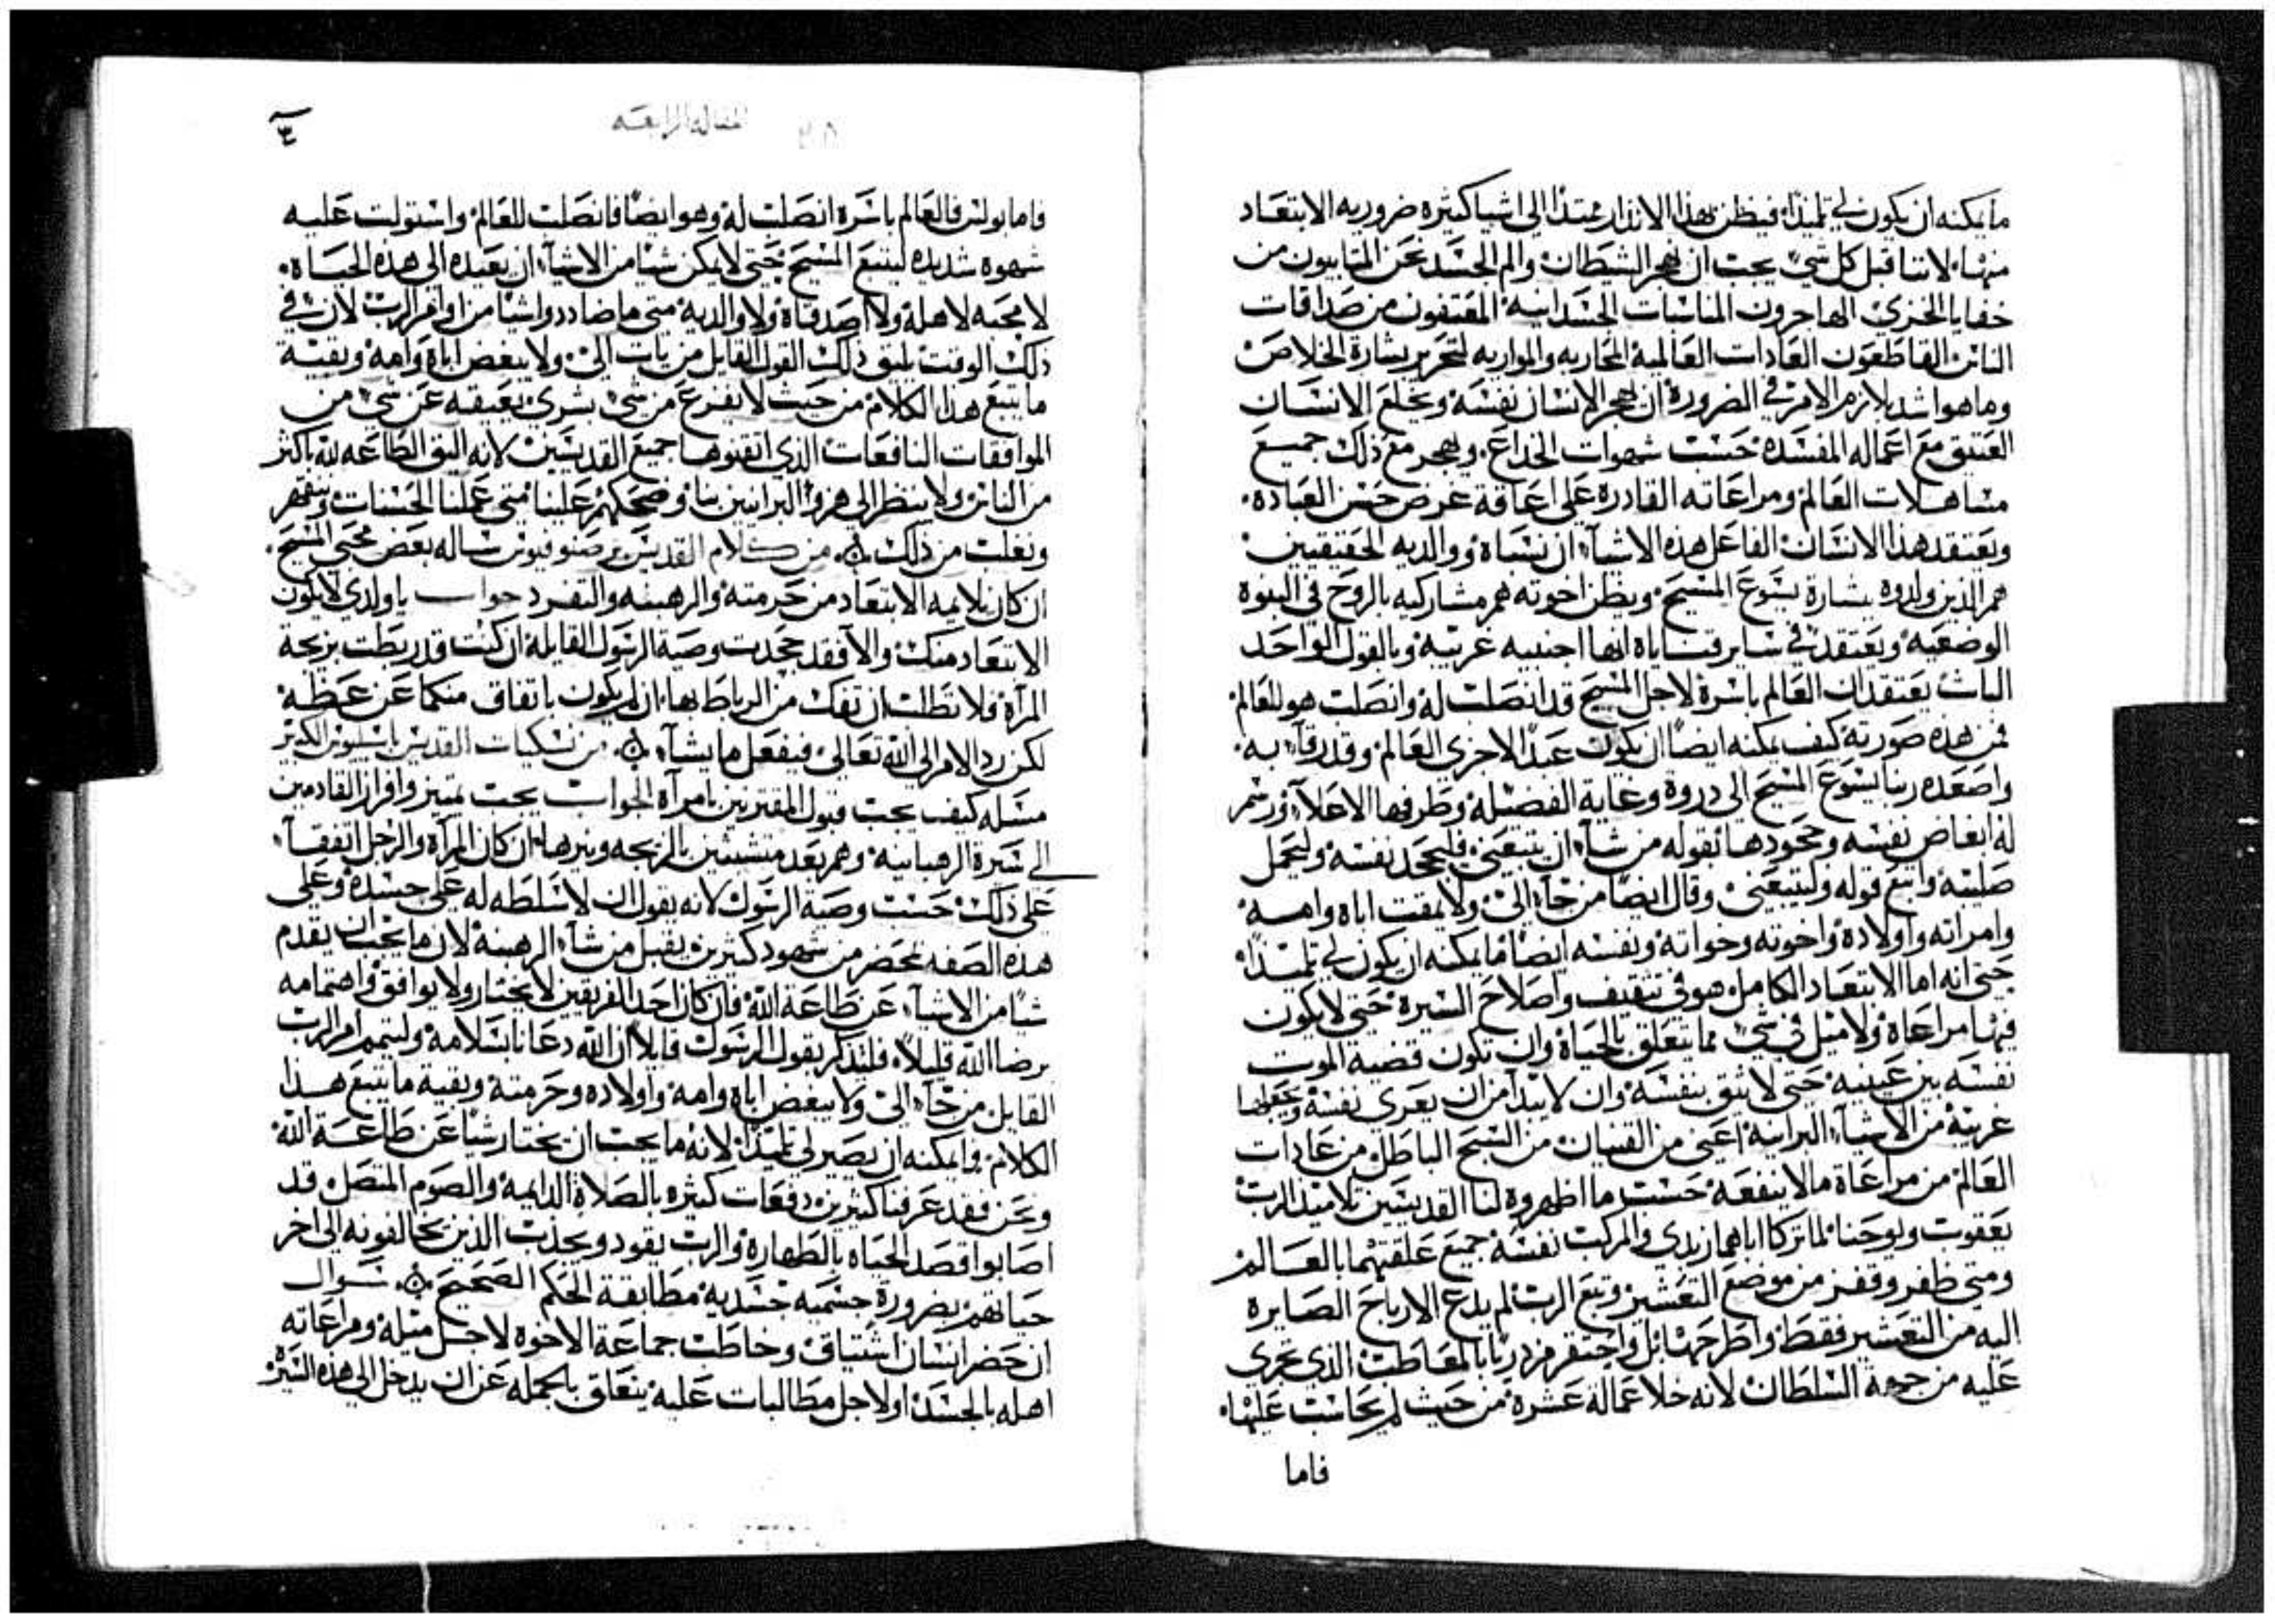 ما يمكنه ان يكون لي تلميذا فيظن بهذا الانذار ممتدا الى اشيا كثيره ضروريه الابتعاد
منها لاننا قبل كل شي يجب ان نهجر الشيطان والم الجسد نحن المتايبون من
خفايا الخزي الهاجرون المناسبات الجسدانيه المقتفون من صداقات
الناس القاطعون العادات العالميه المحاربه والمواربه لتحرير بشارة الخلاص
وما هو اشد بلازم الامر في الضرورة ان يهجر الانسان نفسه ويخلع الانسان
العتيق مع اعماله المفسده حسب شهوات الخداع ويهجر مع ذلك جميع
مشاهلات العالم ومراعاته القادرة على اعاقة غرض حسن العباده
ويعتقد هذا الانسان الفاعل هذه الاشيآ ان نسباه ووالديه الحقيقيين
هم الذين ولدوه ببشارة يسوع المسيح ويظن اخوته هم مشاركيه بالروح في البنوه
الوضعيه ويعتقد في ساير قناياه انها اجنبيه غريبه وبالقول الواحد
البات يعتقد ان العالم باسره لاجل المسيح قد انصلب له وانصلب هو للعالم
فمن هذه صورته كيف يمكنه ايضا ان يكون عبدا لاخرى العالم وقد رقآ به
واصعده ربنا يسوع المسيح الى دروة وغاية الفضيله وطرفها الاعلآ ورسم
له ابغاض نفسه وجحودها بقوله من شآ ان يتبعني فليجحد نفسه وليحمل
صليبه واتبع قوله وليتبعني وقال ايضا من جآ الي ولا يمقت اباه وامه
وامراته واولاده واخوته وخواته ونفسه ايضا فما يمكنه ان يكون لي تلميذا
حتى انه اما الابتعاد الكامل هو في تثقيف واصلاح السيرة حتى لا يكون
فيها مراعاة ولا ميل في شي مما يتعلق بالحياة وان تكون قضية الموت
نفسه بين عينيه حتى لا يثق بنفسه وان لابتدآ من ان يعري نفسه ويجعلها
غريبة من الاشيآ البرانيه اعني من القنيان من السبح الباطل من عادات
العالم من مراعاة ما لا ينفعه حسب ما اظهروه لنا القديسين تلاميذ الرب
يعقوب ويوحنا لما تركا اباهما زبدي والمركب نفسه جميع علقتهما بالعالم
ومتى ظفر وقفز من موضع التعشير وتبع الرب لم يدع الارباح الصايره
اليه من التعشير فقط واطرحها بل واحتقر مزدريا بالمعاطب الذي تجري
عليه من جهة السلطان لانه خلا عمالة عشرة من حيث لم يحاسب عليها
فاما
المقاله الرابعه
فاما بولس فالعالم باسره انصلب له وهو ايضا فانصلب للعالم واستولت عليه
شهوه شديده ليتبع المسيح حتى لا يمكن شيا من الاشيآ ان يعيده الى هذه الحياة
لا محبه لاهله ولا اصدقاه ولا والديه متى ما ضاددوا شيا من اوامر الرب لان في
ذلك الوقت يليق ذلك القول القايل من يات الي ولا يبغض اباه وامه وبقية
ما يتبع هذا الكلام من حيث لا يفزع من شي بشري يعيقه عن شي من
الموافقات النافعات الذي اتقنوها جميع القديسين لانه اليق الطاعه لله باكثر
من الناس ولا ينظر الى هزو البرانيين بنا وضحكهم علينا متى عملنا الحسنات ونتقهر
ونغلب من ذلك من كلام القديس برصنوفيوس ساله بعض محبي المسيح
ان كان يلايمه الابتعاد من حرمته والرهبنه والتفرد جواب يا ولدي لا يكون
الابتعاد منك والا فقد جحدت وصية الرسول القايله ان كنت قد ربطت بزيجة
المرآة فلا تطلب ان تفك من الرباط بها ان لم يكون باتفاق منكما عن عظة
لكن رد الامر الى الله تعالى فيفعل ما يشآ من نسكيات القديس باسيليوس الكبير
مسله كيف يجب قبول المقترنين بامرآة الجواب يجب تمييز وافراز القادمين
الى سيرة الرهبانيه وهم بعد متشبثين بالزيجه ونيرها ان كان المرآة والرجل اتفقآ
على ذلك حسب وصية الرسول لانه يقول ان لا سلطه له على جسده وعلى
هذه الصفه بمحضر من شهود كثيرين يقبل من شآ الرهبنه لان ما يجب ان يقدم
شيا من الاشيآ عن طاعة الله فان كان احد الفريقين لا يختار ولا يوافق واهتمامه
برضا الله قليلا فليتذكر بقول الرسول قايلا ان الله دعانا بسلامه وليتمم امر الرب
القايل من جآ الي ولا يبغض اباه وامه واولاده وحرمته وبقية ما يتبع هذا
الكلام فما يمكنه ان يصير لي تلميذا لانه ما يجب ان يختار شيا عن طاعة الله
ونحن فقد عرفنا كثيرين دفعات كثيره بالصلاة الدايمه والصوم المتصل قد
اصابوا قصد الحياه بالطهارة والرب يقود ويجذب الذين يخالفونه الى اخر
حياتهم بضرورة جسميه جسديه مطابقة الحكم الصحيح سوال
ان حضر انسان اشتياق وخاطب جماعة الاخوه لاجل ميله ومراعاته
اهله بالجسد اولاجل مطالبات عليه يتعاق بالجمله عن ان يدخل الى هذه السيرة